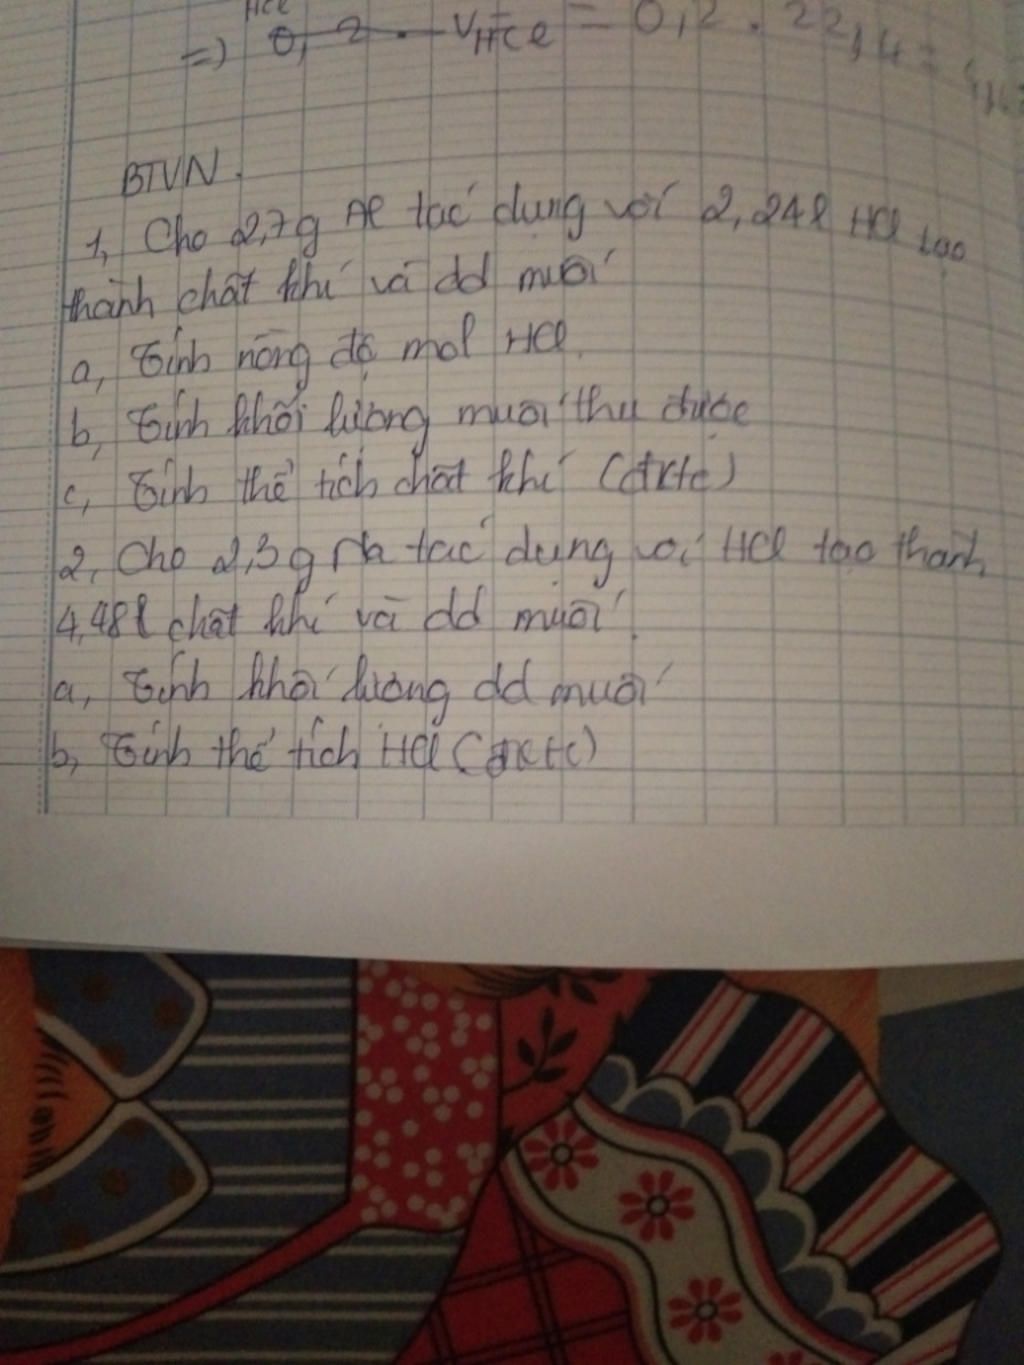 HCl
=> 0,2 . VHCl = 0,2 . 22,4 =
BTVN.
1, Cho 2,7g Al tác dụng với 2,24l HCl tạo
thành chất khí và dd muối
a, Tính nồng độ mol HCl.
b, Tính khối lượng muối thu được
c, Tính thể tích chất khí (đktc)
2, Cho 2,3g Na tác dụng với HCl tạo thành
4,48l chất khí và dd muối.
a, Tính khối lượng dd muối
b, Tính thể tích HCl (đktc)